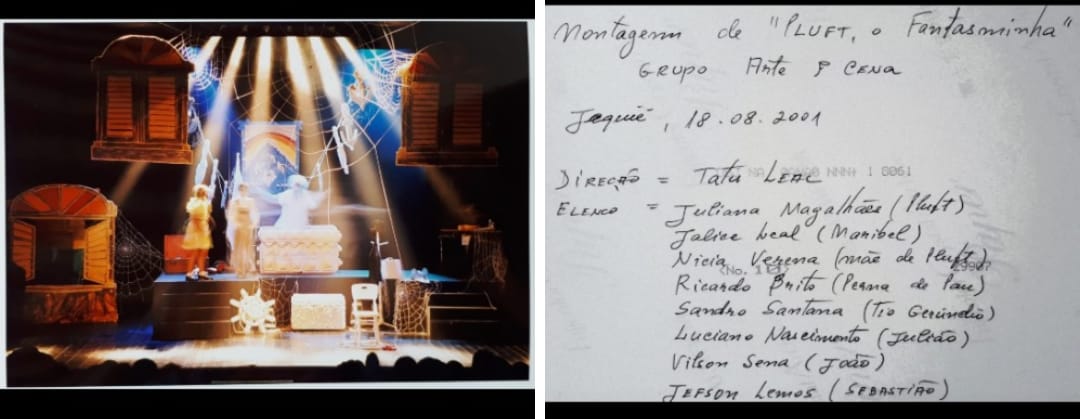 Montagem de "PLUFT, o Fantasminha"
GRUPO Arte & CENA
Jequié, 18.08.2001
DIREÇÃO = Tatu LEAL
ELENCO = Juliana Magalhães (Pluft)
Jalice Leal (Maribel)
Nícia Verena (mãe de Pluft)
Ricardo Brito (Perna de Pau)
Sandro Santana (Tio Gerúndio)
Luciano Nascimento (Julião)
Vilson Sena (João)
JEFSON Lemos (SEBASTIÃO)